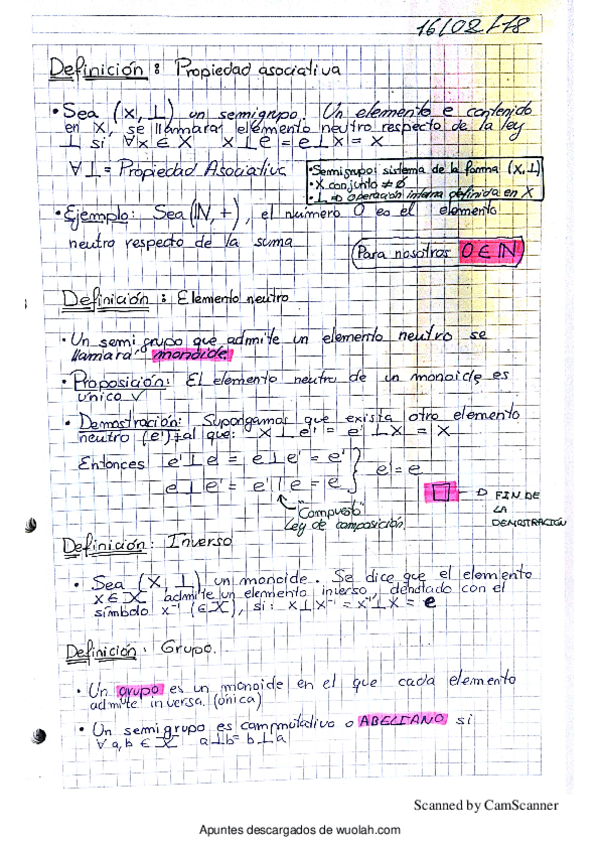 16/02/18
Definición: Propiedad asociativa
• Sea (X, ⊥) un semigrupo. Un elemento e contenido
en X, se llamará elemento neutro respecto de la ley
⊥ si ∀x ∈ X x⊥e = e⊥x = x
∀⊥ = Propiedad Asociativa
• Semigrupo: sistema de la forma (X,⊥)
• X conjunto ≠ ∅
• ⊥ ⇒ operación interna definida en X
• Ejemplo: Sea (ℕ, +), el número 0 es el elemento
neutro respecto de la suma
Para nosotros 0 ∈ ℕ
Definición: Elemento neutro
• Un semigrupo que admite un elemento neutro se
llamará monoide
• Proposición: El elemento neutro de un monoide es
único
• Demostración: Supongamos que exista otro elemento
neutro (e') tal que: x⊥e' = e'⊥x = x
Entonces e'⊥e = e⊥e' = e'
e⊥e' = e'⊥e = e } e' = e
"Compuesto"
Ley de composición
□ → FIN DE
LA
DEMOSTRACIÓN
Definición: Inverso
• Sea (X, ⊥) un monoide. Se dice que el elemento
x ∈ X admite un elemento inverso, denotado con el
símbolo x⁻¹ (∈ X), si: x⊥x⁻¹ = x⁻¹⊥x = e
Definición: Grupo.
• Un grupo es un monoide en el que cada elemento
admite inversa. (única)
• Un semigrupo es commutativo o ABELIANO si
∀ a,b ∈ X a⊥b = b⊥a
Scanned by CamScanner
Apuntes descargados de wuolah.com